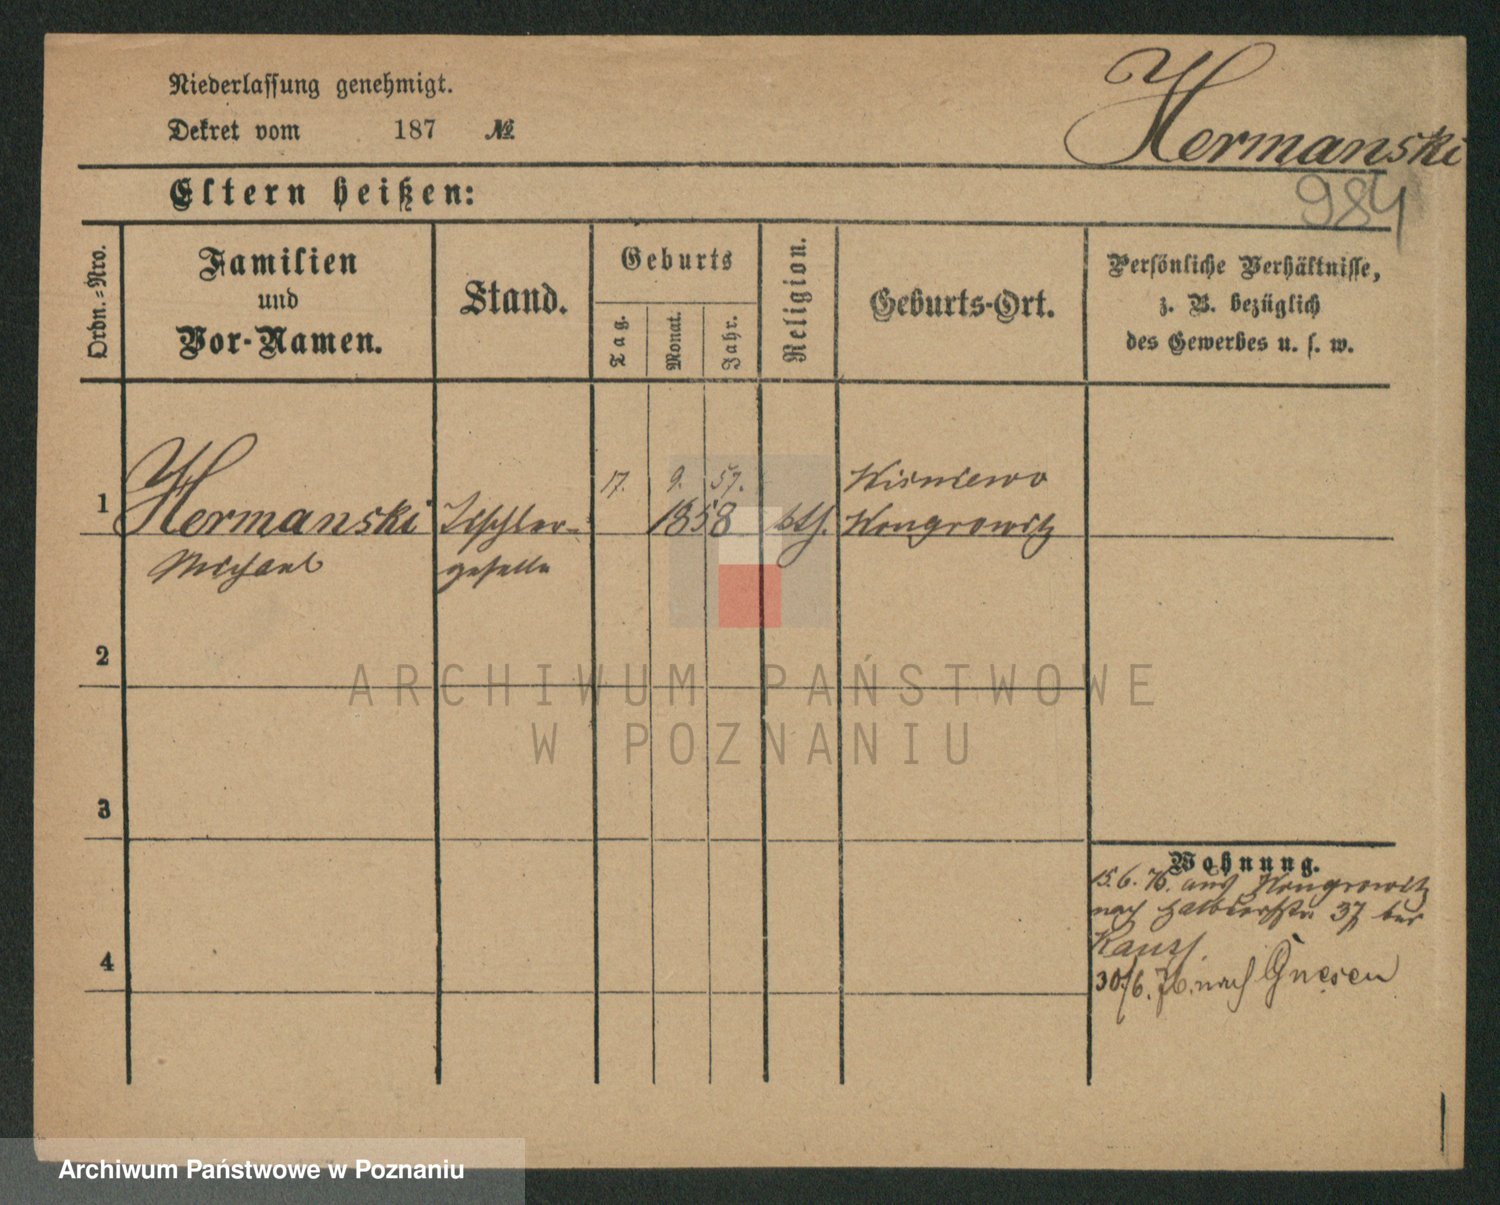 Niederlassung genehmigt.
Dekret vom 187 №
Hermanski
984
Eltern heißen:
Ordn.-Nro.
Familien
und
Vor-Namen.
Stand.
Geburts
Tag.
Monat.
Jahr.
Religion.
Geburts-Ort.
Persönliche Verhältnisse,
z. B. bezüglich
des Gewerbes u. s. w.
17. 9. 57. Wisniewo
1 Hermanski Tischler- 1858 kth. Wongrowitz
Michael geselle
2
3
4
Wohnung.
15.6.76. aus Wongrowitz
nach Halbdorfstr. 37 bei
30./6. 76. nach Gnesen
ARCHIWUM PAŃSTWOWE
W POZNANIU
Archiwum Państwowe w Poznaniu